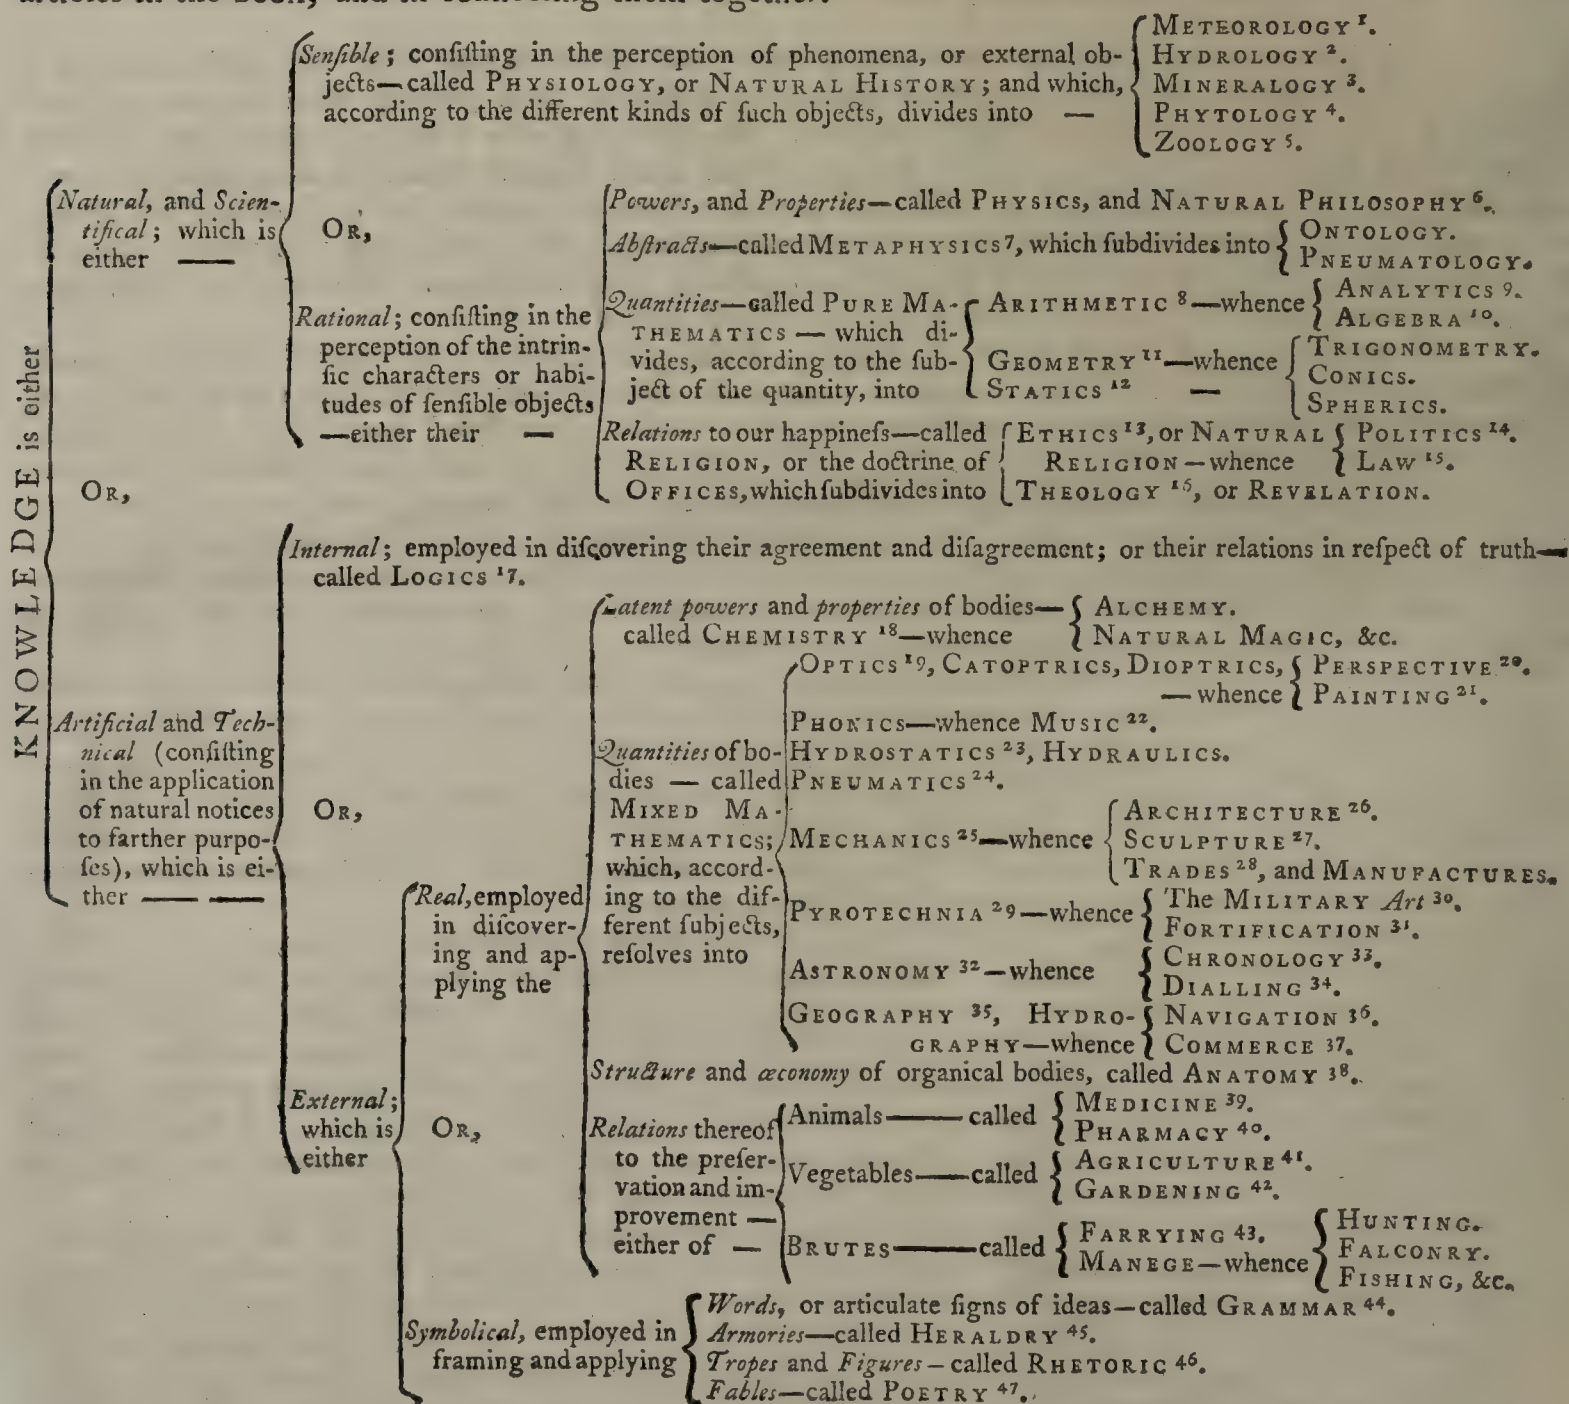 articles in the book, and in connecting them together.
KNOWLEDGE is either
Natural, and Scien-
tifical; which is
either ——
OR,
Artificial and Tech-
nical (conſiſting
in the application
of natural notices
to farther purpo-
ſes), which is ei-
ther —— ——
Senſible; conſiſting in the perception of phenomena, or external ob-
jects—called PHYSIOLOGY, or NATURAL HISTORY; and which,
according to the different kinds of ſuch objects, divides into —
METEOROLOGY 1.
HYDROLOGY 2.
MINERALOGY 3.
PHYTOLOGY 4.
ZOOLOGY 5.
OR,
Rational; conſiſting in the
perception of the intrin-
ſic characters or habi-
tudes of ſenſible objects
—either their —
Powers, and Properties—called PHYSICS, and NATURAL PHILOSOPHY 6.
Abſtracts—called METAPHYSICS 7, which ſubdivides into
ONTOLOGY.
PNEUMATOLOGY.
Quantities—called PURE MA-
THEMATICS — which di-
vides, according to the ſub-
ject of the quantity, into
ARITHMETIC 8—whence
ANALYTICS 9.
ALGEBRA 10.
GEOMETRY 11—whence
STATICS 12 —
TRIGONOMETRY.
CONICS.
SPHERICS.
Relations to our happineſs—called
RELIGION, or the doctrine of
OFFICES, which ſubdivides into
ETHICS 13, or NATURAL
RELIGION—whence
POLITICS 14.
LAW 15.
THEOLOGY 16, or REVELATION.
Internal; employed in diſcovering their agreement and diſagreement; or their relations in reſpect of truth—
called LOGICS 17.
OR,
External;
which is
either
Real, employed
in diſcover-
ing and ap-
plying the
Latent powers and properties of bodies—
called CHEMISTRY 18—whence
ALCHEMY.
NATURAL MAGIC, &c.
Quantities of bo-
dies — called
MIXED MA-
THEMATICS;
which, accord-
ing to the dif-
ferent ſubjects,
reſolves into
OPTICS 19, CATOPTRICS, DIOPTRICS,
—whence
PERSPECTIVE 20.
PAINTING 21.
PHONICS—whence MUSIC 22.
HYDROSTATICS 23, HYDRAULICS.
PNEUMATICS 24.
MECHANICS 25—whence
ARCHITECTURE 26.
SCULPTURE 27.
TRADES 28, and MANUFACTURES.
PYROTECHNIA 29—whence
The MILITARY Art 30.
FORTIFICATION 31.
ASTRONOMY 32—whence
CHRONOLOGY 33.
DIALLING 34.
GEOGRAPHY 35, HYDRO-
GRAPHY—whence
NAVIGATION 36.
COMMERCE 37.
Structure and œconomy of organical bodies, called ANATOMY 38.
Relations thereof
to the preſer-
vation and im-
provement —
either of —
Animals—— called
MEDICINE 39.
PHARMACY 40.
Vegetables——called
AGRICULTURE 41.
GARDENING 42.
BRUTES——called
FARRYING 43.
MANEGE—whence
HUNTING.
FALCONRY.
FISHING, &c.
OR,
Symbolical, employed in
framing and applying
Words, or articulate ſigns of ideas—called GRAMMAR 44.
Armories—called HERALDRY 45.
Tropes and Figures—called RHETORIC 46.
Fables—called POETRY 47.